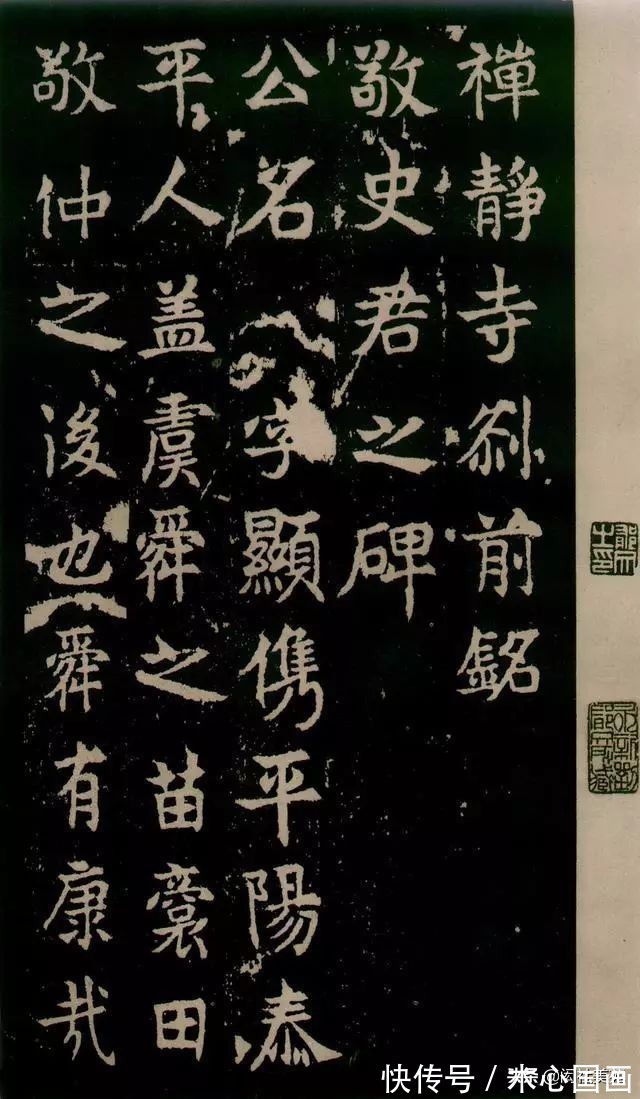 禪靜寺刹前銘
敬史君之碑
公名字顯儁平陽泰
平人蓋虞舜之苗裔田
敬仲之後也舜有康哉
快传号／木心国画